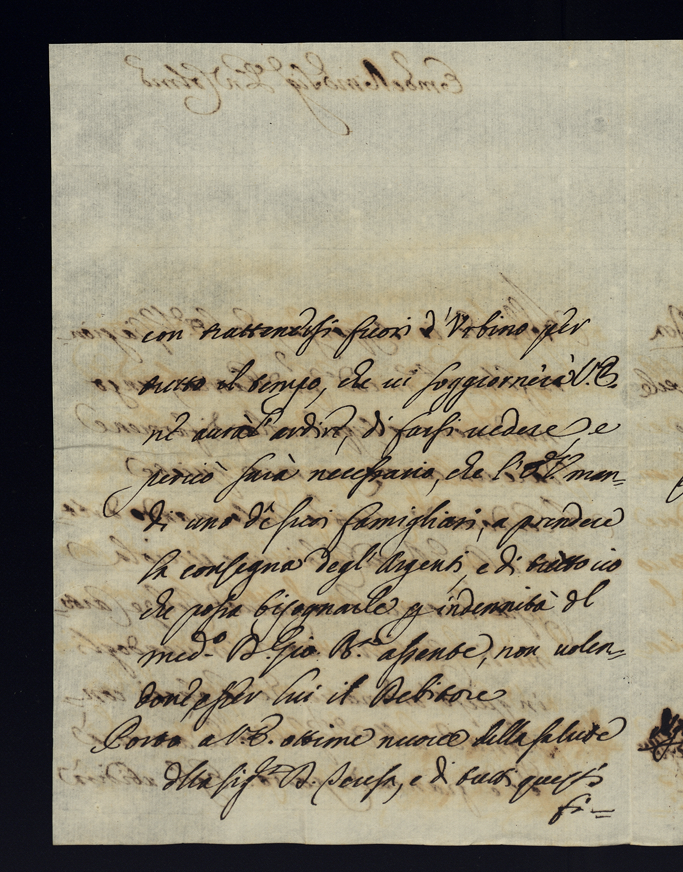 con trattenersi fuori d'Urbino per
tutto il tempo, che vi soggiornerà V.E.
nè aurà l'ardire, di farsi uedere, e
perciò sarà necessario, che l'E.V. man-
di uno de suoi famigliari, a prendere
la consegna degl'Argenti, e di tutto ciò
che possa bisognarle p indennità del
med.o D. Gio. B.a assente, non uolen-
done esser lui il Debitore
Porto a V.E. ottime nuove della salute
della Sig.ra D. Teresa, e di tutti questi
si=